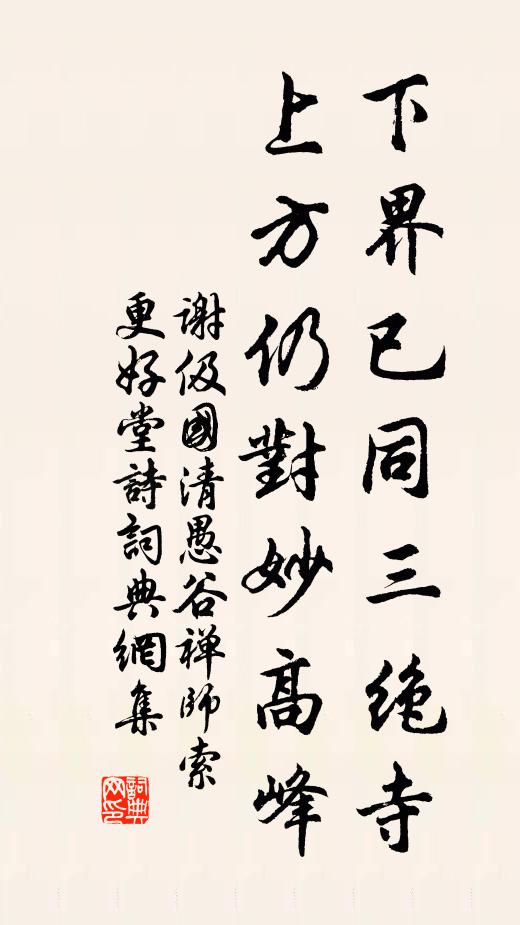 下界已同三絶寺
上方仍對妙高峰
謝伋國清愚谷禅師索
更好堂詩詞典網集
詞典網印